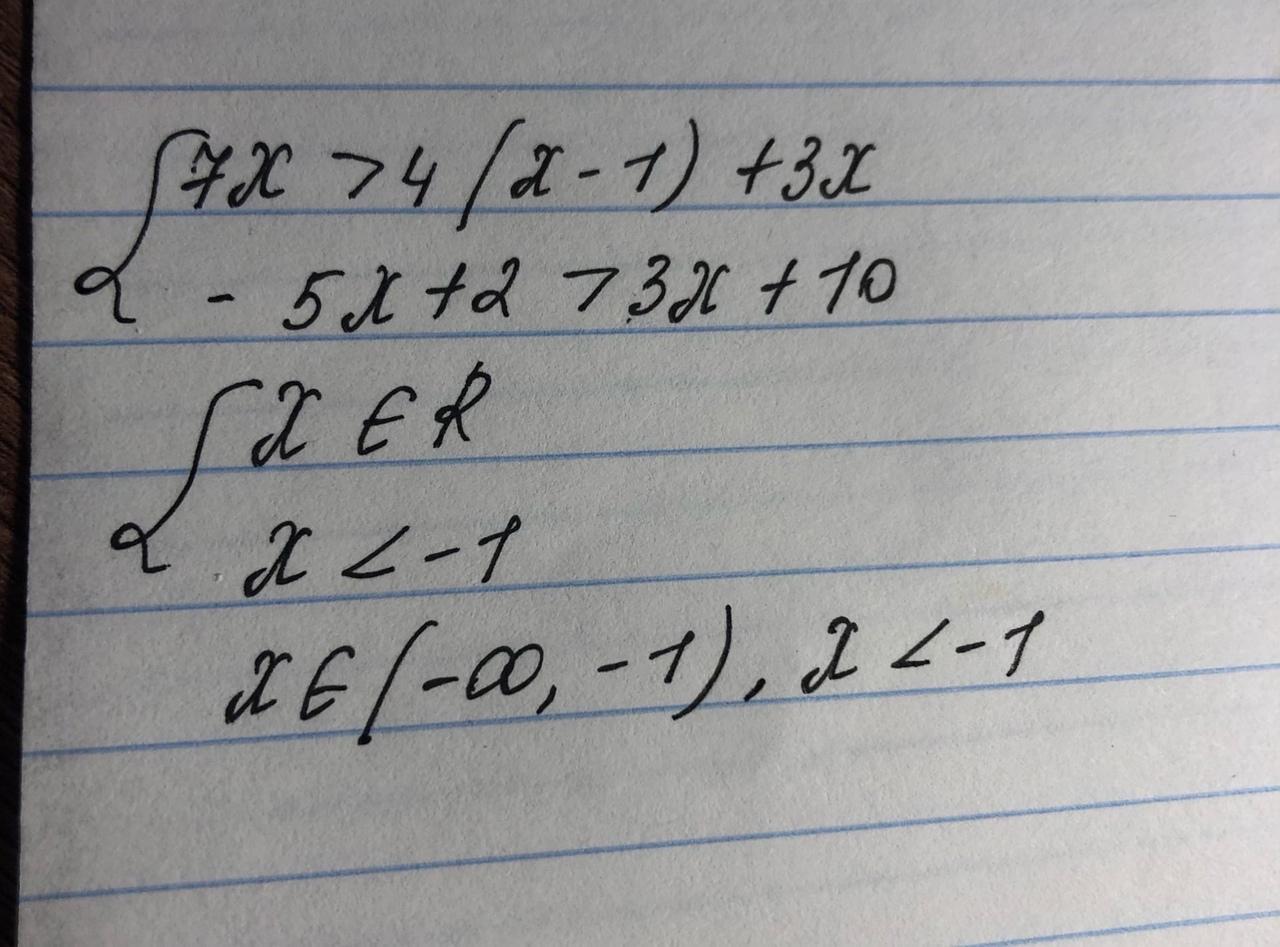 7x > 4(x - 1) + 3x
- 5x + 2 > 3x + 10
x ∈ R
x < -1
x ∈ (-∞, -1), x < -1